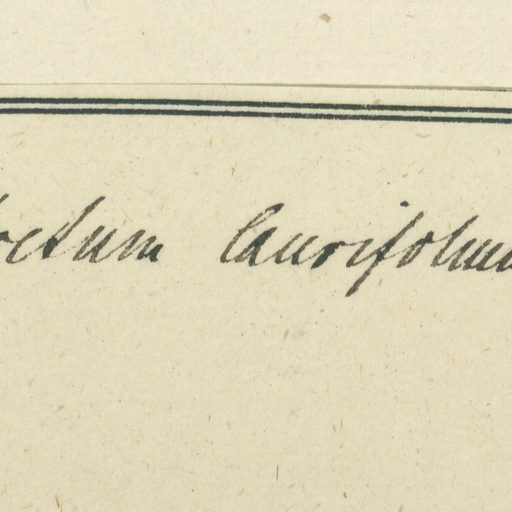 ctum laurifolium